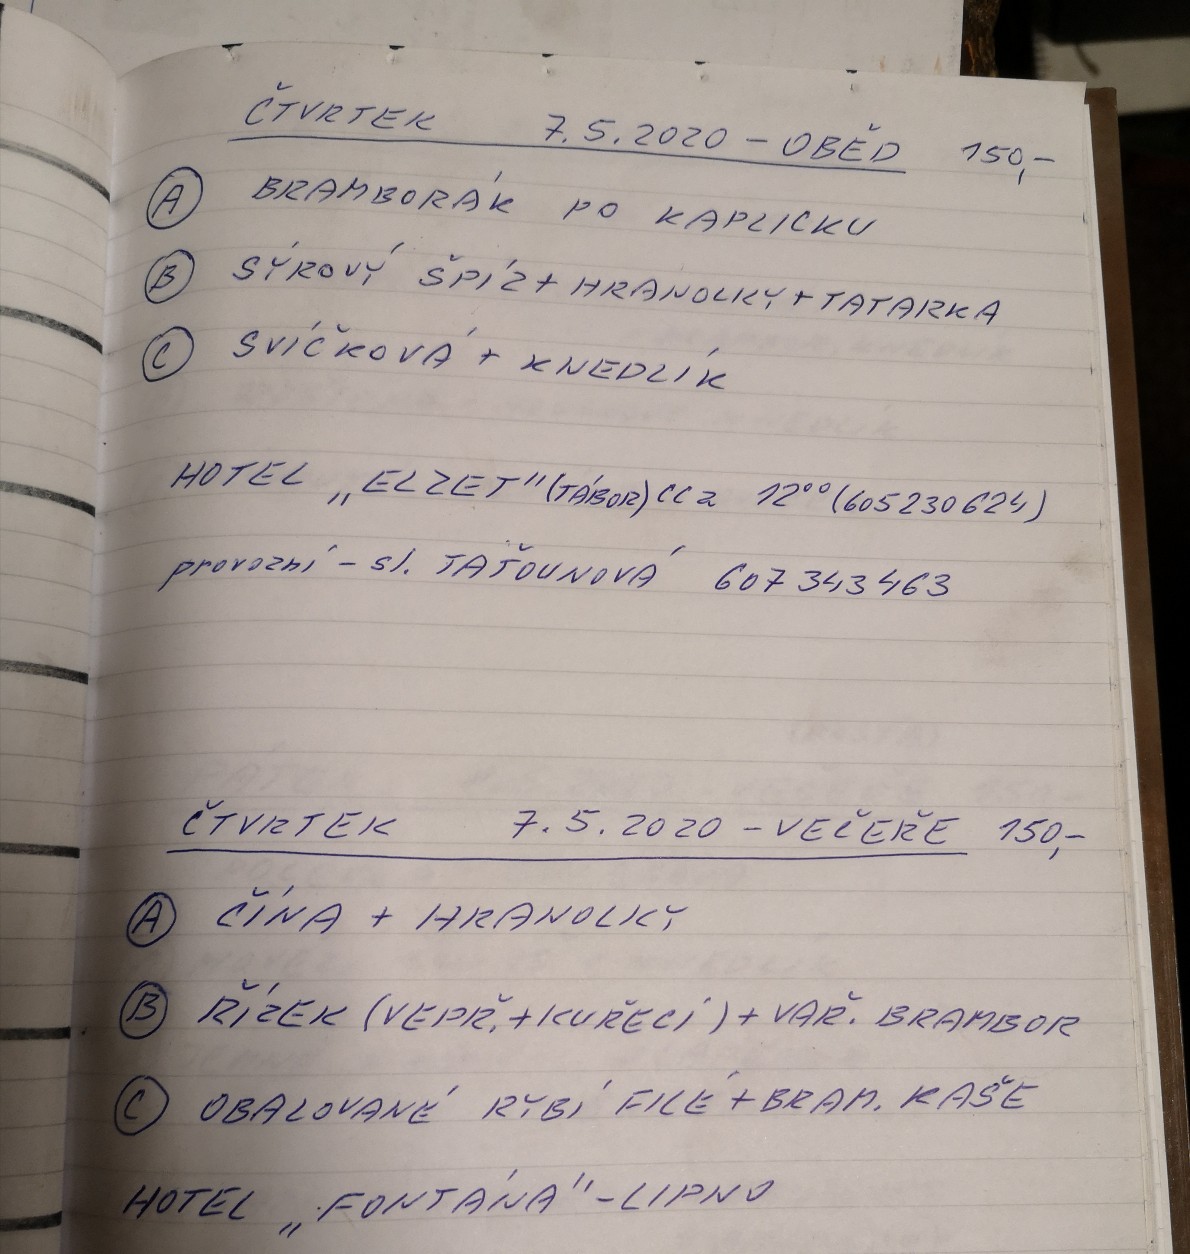 ČTVRTEK 7.5.2020 - OBĚD 150,-
A BRAMBORÁK PO KAPLICKU
B SÝROVÝ ŠPÍZ + HRANOLKY + TATARKA
C SVÍČKOVÁ + KNEDLÍK
HOTEL „ELZET" (TÁBOR) cca 12⁰⁰ (605230624)
provozní - sl. TAŤOUNOVÁ 607 343 463
ČTVRTEK 7.5.2020 - VEČEŘE 150,-
A ČÍNA + HRANOLKY
B ŘÍZEK (VEPŘ. + KUŘECÍ) + VAŘ. BRAMBOR
C OBALOVANÉ RYBÍ FILÉ + BRAM. KAŠE
HOTEL „FONTÁNA" - LIPNO